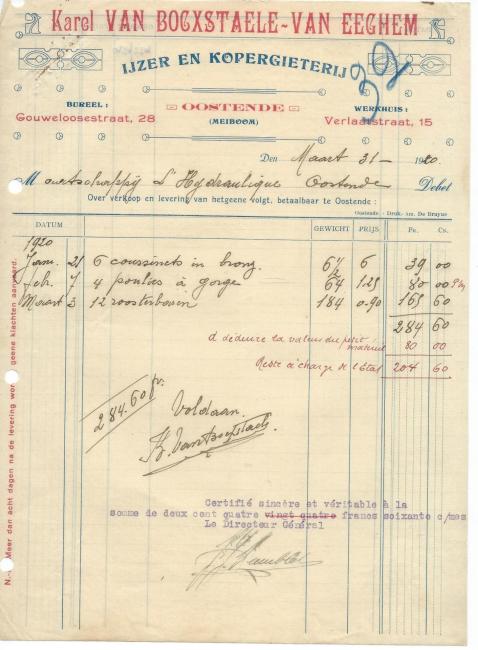 Karel VAN BOCXSTAELE-VAN EEGHEM
IJZER EN KOPERGIETERIJ
39
BUREEL :
Gouweloosestraat, 28
OOSTENDE
(MEIBOOM)
WERKHUIS :
Verlaatstraat, 15
Den Maart 31 - 1920
Maatschappij L'Hydraulique Oostende Debet
Over verkoop en levering van hetgeene volgt, betaalbaar te Oostende :
Oostende - Druk. Am. De Bruyne
DATUM GEWICHT PRIJS Fr. Cn.
1920
Janu. 21 6 coussinets in bronz. 6 1/2 6 39 00
Feb. 7 4 poulies à gorge 64 1.25 80 00
Maart 3 12 roosterbaren 184 0.90 165 60
284 60
à déduire la valeur du petit matériel 80 00
Reste à charge de l'Etat 204 60
284.60 fr.
Voldaan
K. Van Bocxstaele
Certifié sincère et véritable à la
somme de deux cent quatre vingt quatre francs soixante c/mes
Le Directeur Général
N.- Meer dan acht dagen na de levering wor geene klachten aanvaard.